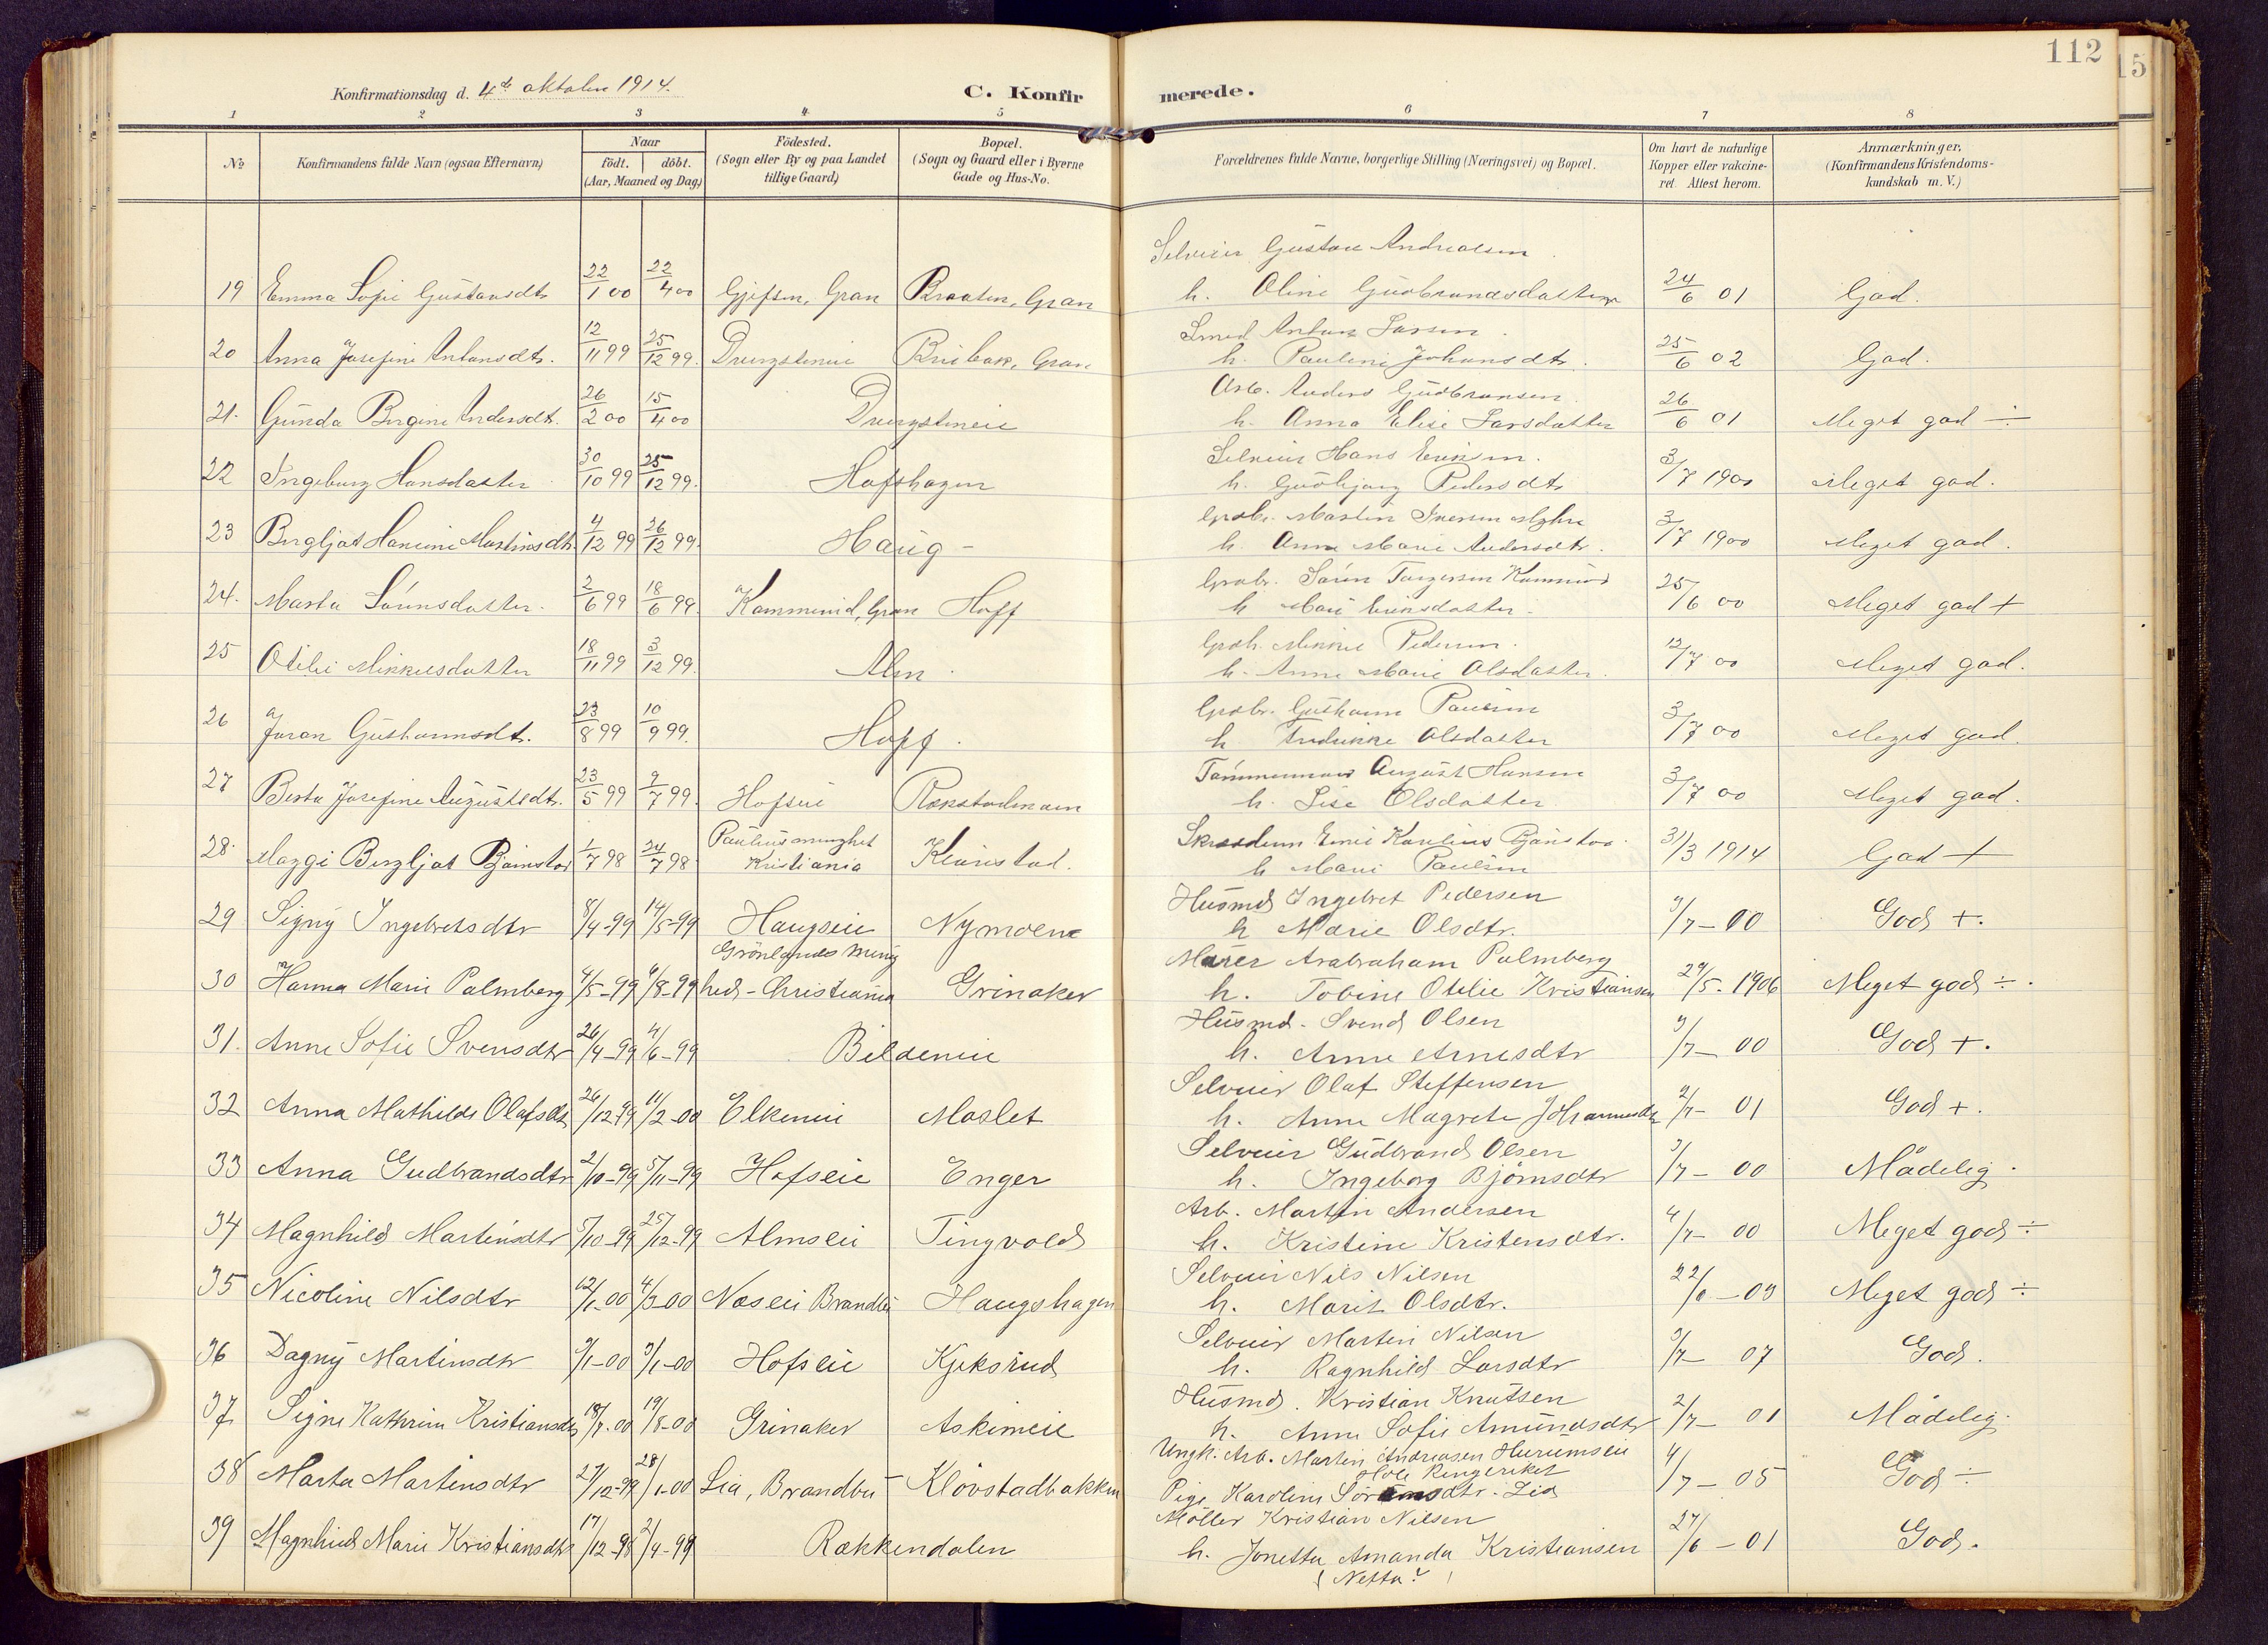 112
15
Konfirmationsdag d. 4de oktober 1914.
C. Konfirmerede.
1 2 3 4 5 6 7 8
No
Konfirmandens fulde Navn (ogsaa Efternavn)
Naar
födt. döbt.
(Aar, Maaned og Dag)
Födested.
(Sogn eller By og paa Landet
tillige Gaard)
Bopæl.
(Sogn og Gaard eller i Byerne
Gade og Hus-No.
Forældrenes fulde Navne, borgerlige Stilling (Næringsvei) og Bopæl.
Om havt de naturlige
Kopper eller vakcine-
ret. Attest herom.
Anmærkninger.
(Konfirmandens Kristendoms-
kundskab m. V.)
Selveier Gustav Andreasen
19 Emma Sofie Gustavsdtr 22/1 00 22/4 00 Gjefsen, Gran Braaten, Gran h. Oline Gudbrandsdatter 24/6 01 God.
Smed Anton Larsen
20 Anna Josefine Antonsdtr. 12/11 99 25/12 99. Dvergsteneie Brisbak, Gran h. Pauline Johansdtr. 25/6 02 God.
Arb. Anders Gudbransen
21. Gunda Birgine Andersdt. 26/2 00 15/4 00 Dvergsteneie h. Anna Elise Larsdatter 26/6 01 Meget god ÷
Selveier Hans Eriksen.
22 Ingeborg Hansdatter 30/10 99 25/12 99. Hofshagen h. Gudbjørg Pedersdtr 3/7 1900 Meget god.
Grdbr. Martin Iversen Myhre
23 Bergljot Hansine Martinsdtr. 4/12 99 26/12 99. Haug - h. Anne Marie Andersdtr. 3/7 1900 Meget god.
Grdbr. Sören Torgersen Kammerud
24. Marta Sörensdatter. 2/6 99 18/6 99. Kammerud, Gran Hoff h. Mari Eriksdatter. 25/6 00 Meget god +
Grdb. Mikkel Pedersen.
25 Otilie Mikkelsdatter 18/11 99 3/12 99. Alm. h. Anne Marie Olsdatter. 12/7 00 Meget god.
Grdbr. Guthorm Paulsen
26 Joran Guthormsdt. 23/8 99 10/9 99. Hoff. h. Andrikke Olsdatter 3/7 00 Meget god.
Tömmermand August Hansen
27 Berta Josefine Augustsdtr. 23/5 99 9/7 99. Hofseie Rækstadmoen h. Lise Olsdatter 3/7 00 Meget god.
Paulus menighet
Skrædderm Emil Karelius Bjönstad.
28. Maggi Bergljot Björnstad 1/7 98 24/7 98 Kristiania Kleivistad. h Mari Paulsen 31/3 1914 God +
Husmd Ingebret Pedersen
29 Signy Ingebretsdtr 8/4-99 14/5-99 Haugseie Nymoen h Marie Olsdtr. 3/7-00 God +.
Grönlands Menig
Murer Avabraham Palmberg
30 Hanna Marie Palmberg 4/5-99 6/8-99 hed - Christiania Grinaker h. Tobine Otilie Kristiansen 29/5. 1906 Meget god ÷.
Husmd. Svend Olsen
31. Anne Sofie Svensdtr 26/4-99 4/6-99 Bildeneie h. Anne Arnesdtr 3/7- 00 God +.
Selveier Olaf Steffensen
32 Anna Mathilde Olafsdtr 26/12-99 11/2-00 Elkeneie Moslet h. Anne Magrete Johannesdtr 2/7- 01 God +.
Selveier Gudbrand Olsen
33 Anna Gudbrandsdtr 2/10-99 5/11-99 Hofseie Enger h. Ingeborg Björnsdtr 3/7- 00 Mådelig.
Arb. Martin Andersen
34 Magnhild Martinsdtr 5/10-99 25/12-99 Almseie Tingvold h. Kristine Kristensdtr. 4/7- 00 Meget god ÷
Selveier Nils Nilsen
35 Nicoline Nilsdtr 12/1-00 4/3-00 Næseie Brandbu Haugshagen h. Marit Olsdtr. Meget god ÷
Selveier Martin Nilsen
36 Dagny Martinsdtr Hofseie Kjeksrud h. Ragnhild Larsdtr 3/7- 07 God.
Husmd. Kristian Knutsen
37 Signe Kathrine Kristiansdtr 18/7-00 19/8-00 Grinaker Askimeie h. Anne Sofie Amundsdtr 2/7- 01 Mådelig.
Ungk. Arb. Martin Andreasen Hurumseie
Hole Ringeriket
38 Marta Martinsdtr 27/12-99 28/1-00 Lia, Brandbu Klövstadbakken Pige Karoline Sörensdtr. Lia 4/7- 05 God ÷
Möller Kristian Nilsen
39 Magnhild Marie Kristiansdtr 17/12-98 2/4-99 Rækkendalen h. Jonetta Amanda Kristiansen 27/6-01 God.
(Netta?)